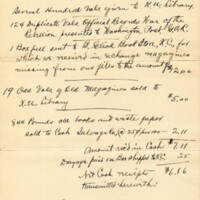 Several Hundred Vols given to K.C. Library.
124 Duplicate Vols Official Records War of the
Rebellion presented to Washington Post G.A.R.
1 Box full sent to Book Store, K.C., for
which we received in exchange magazines
missing from our files to the amount
$42.00
19 Odd Vols of Old Magazines sold to
K.C. Library
$5.00
Pounds old books and waste paper
sold to Cash Salvage Co @ 25¢ 2.11
Amount rec'd in Cash 7.11
.25
Net Cash receipts $6.86
Remitted herewith.